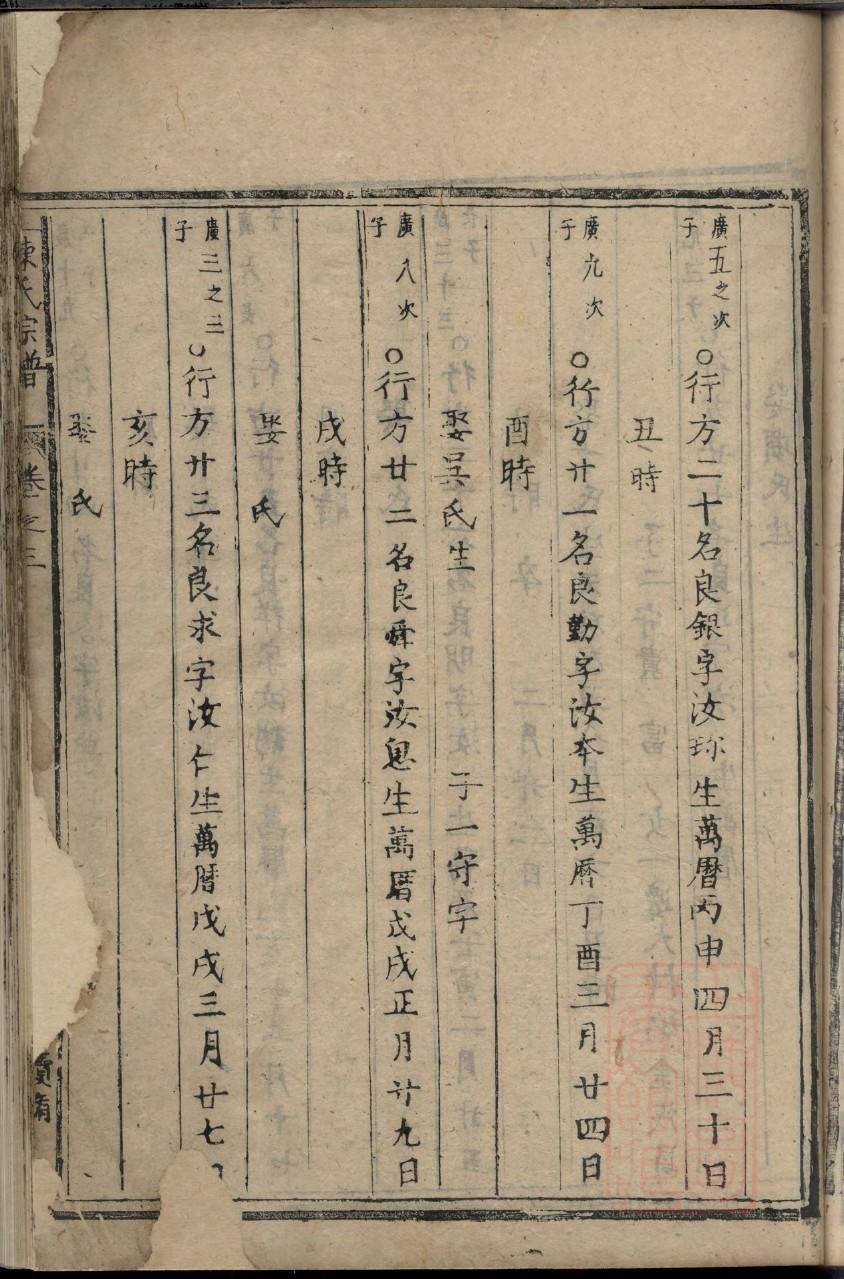 廣五之次子 ○行方二十名良銀字汝珎生萬曆丙申四月三十日
丑時
廣九次子 ○行方廿一名良勤字汝本生萬曆丁酉三月廿四日
酉時
娶吴氏生 子一守字
廣八次子 ○行方廿二名良舜字汝息生萬曆戊戌正月廿九日
戌時
娶 氏
廣三之三子 ○行方廿三名良求字汝仁生萬曆戊戌三月廿七
亥時
娶 氏
陳氏宗譜 卷之三